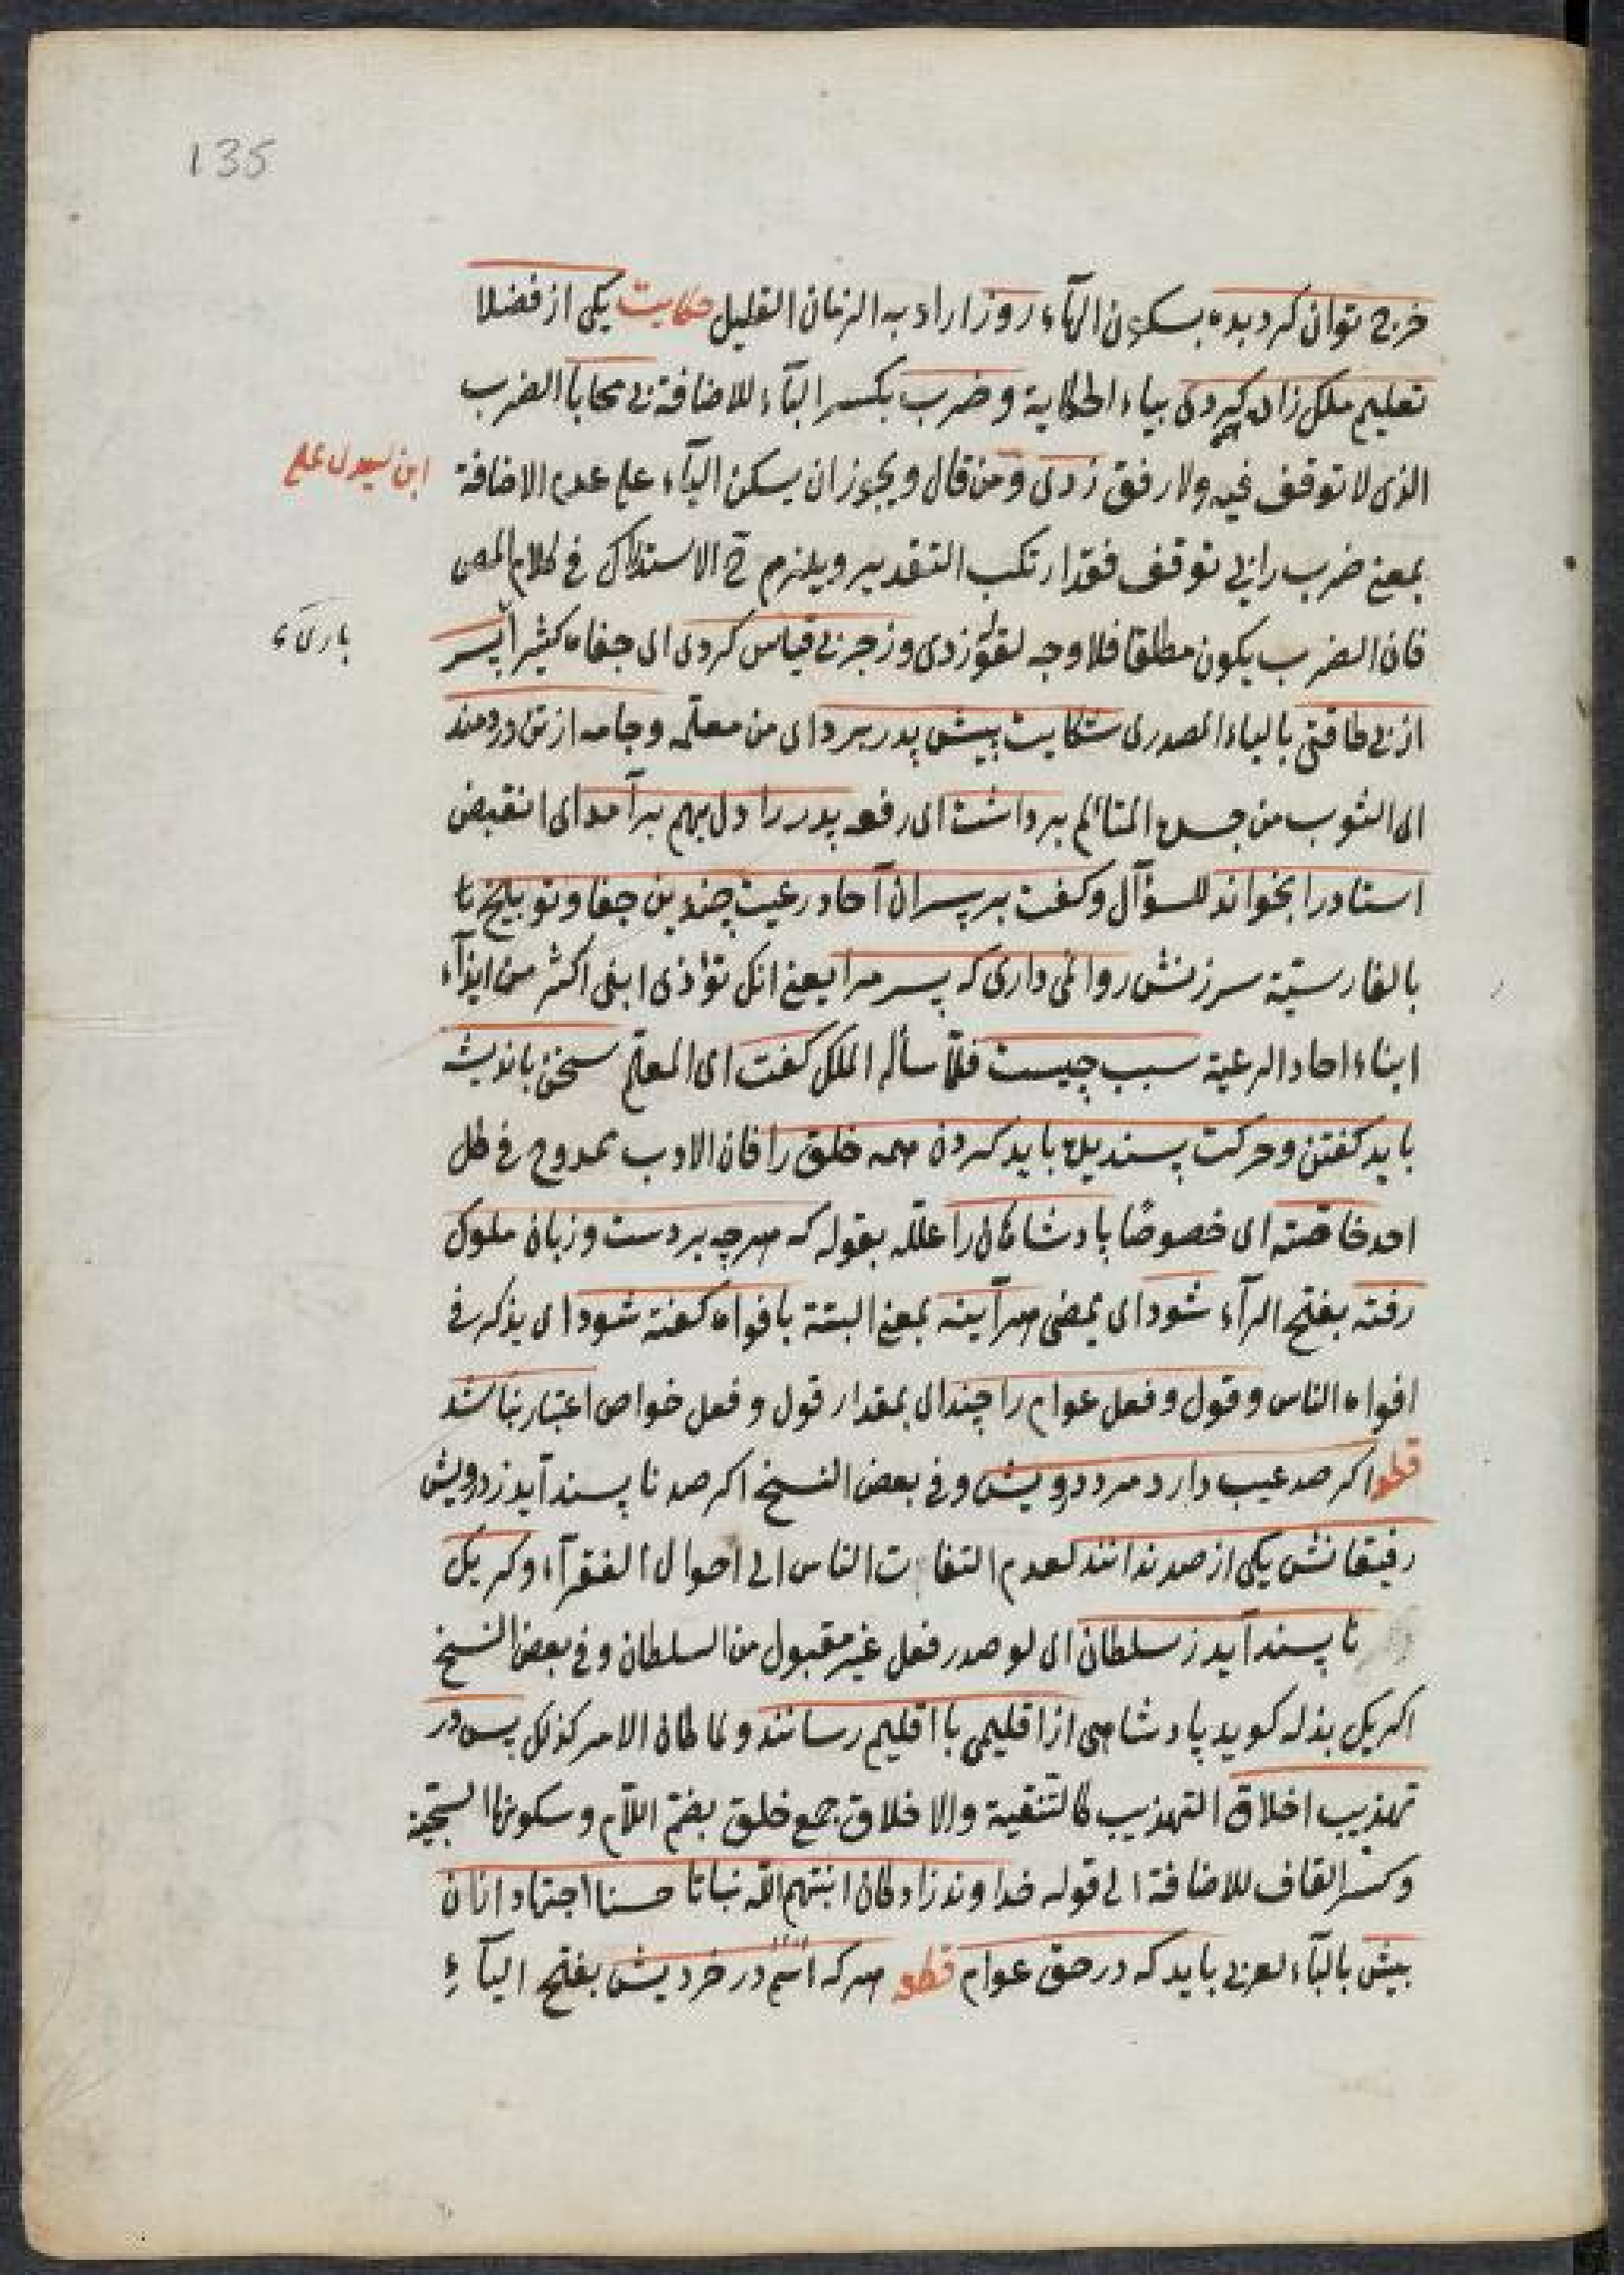 135
خرج توان كرد بده بسكون الهآء روز اراد به الزمان القليل حكايت يكى از فضلا
تعليم ملك زاده كردى بياء الحكاية وضرب بكسر البآء للاضافة بى محابا الضرب
الذى لا توقف فيه ولا رفق زدى ومن قال ويجوز ان يسكن البآء على عدم الاضافة
ابن سيدى على
بمعنى ضرب را بى توقف فقد ارتكب التقدير ويلزم ح الاستدراك فى كلام المص
فان الضرب يكون مطلقا فلا وجه لقوله زدى وزجر بى قياس كردى اى جفاء كثيرا پسر
بارىء
از بى طاقتى بالياء المصدرى شكايت پيش پدر برد اى من معلمه وجامه از تن دردمند
اى الثوب من جسده المتألم برداشت اى رفعه پدر را دل بهم برآمد اى انقبض
استاد را بخواند للسؤال وكفت بر پسران آحاد رعيت چندين جفا وتوبيخ تا
بالفارسية سرزنش روا نمى دارى كه پسر مرا يعنى انك تؤذى ابنى اكثر من ايذآء
ابناء احاد الرعية سبب چيست فلما سأله الملك كفت اى المعلم سخن بانديشه
بايد كفتن وحركت پسنديده بايد كردن همه خلق را فان الادب ممدوح فى كل
احد خاصته اى خصوصا پادشاهان را علله بقوله كه هرچه بر دست وزبان ملوك
رفته بفتح الرآء شود اى يمضى هرآينه بمعنى البتة بافواه كفته شود اى يذكر فى
افواه الناس وقول وفعل عوام را چندان بمقدار قول وفعل خواص اعتبار نباشد
قطعه اكر صد عيب دارد مرد درويش وفى بعض النسخ اكر صد ناپسند آيد ز درويش
رفيقانش يكى از صد ندانند لعدم التفات الناس الى احوال الفقرآء وكر يك
ناپسند آيد ز سلطان اى لو صدر فعل غير مقبول من السلطان وفى بعض النسخ
اكر يك بذله كويد پادشاهى از اقليمى با اقليم رسانند ولما كان الامر كذلك پس در
تهذيب اخلاق التهذيب كالتنقية والاخلاق جمع خلق بضم اللام وسكونها السجية
وكسر القاف للاضافة الى قوله خداوند زادكان انبتهم الله نباتا حسنا اجتهاد ازان
بيش بالبآء العربى بايد كه در حق عوام قطعه هركه اشم در خرديش بفتح اليآء